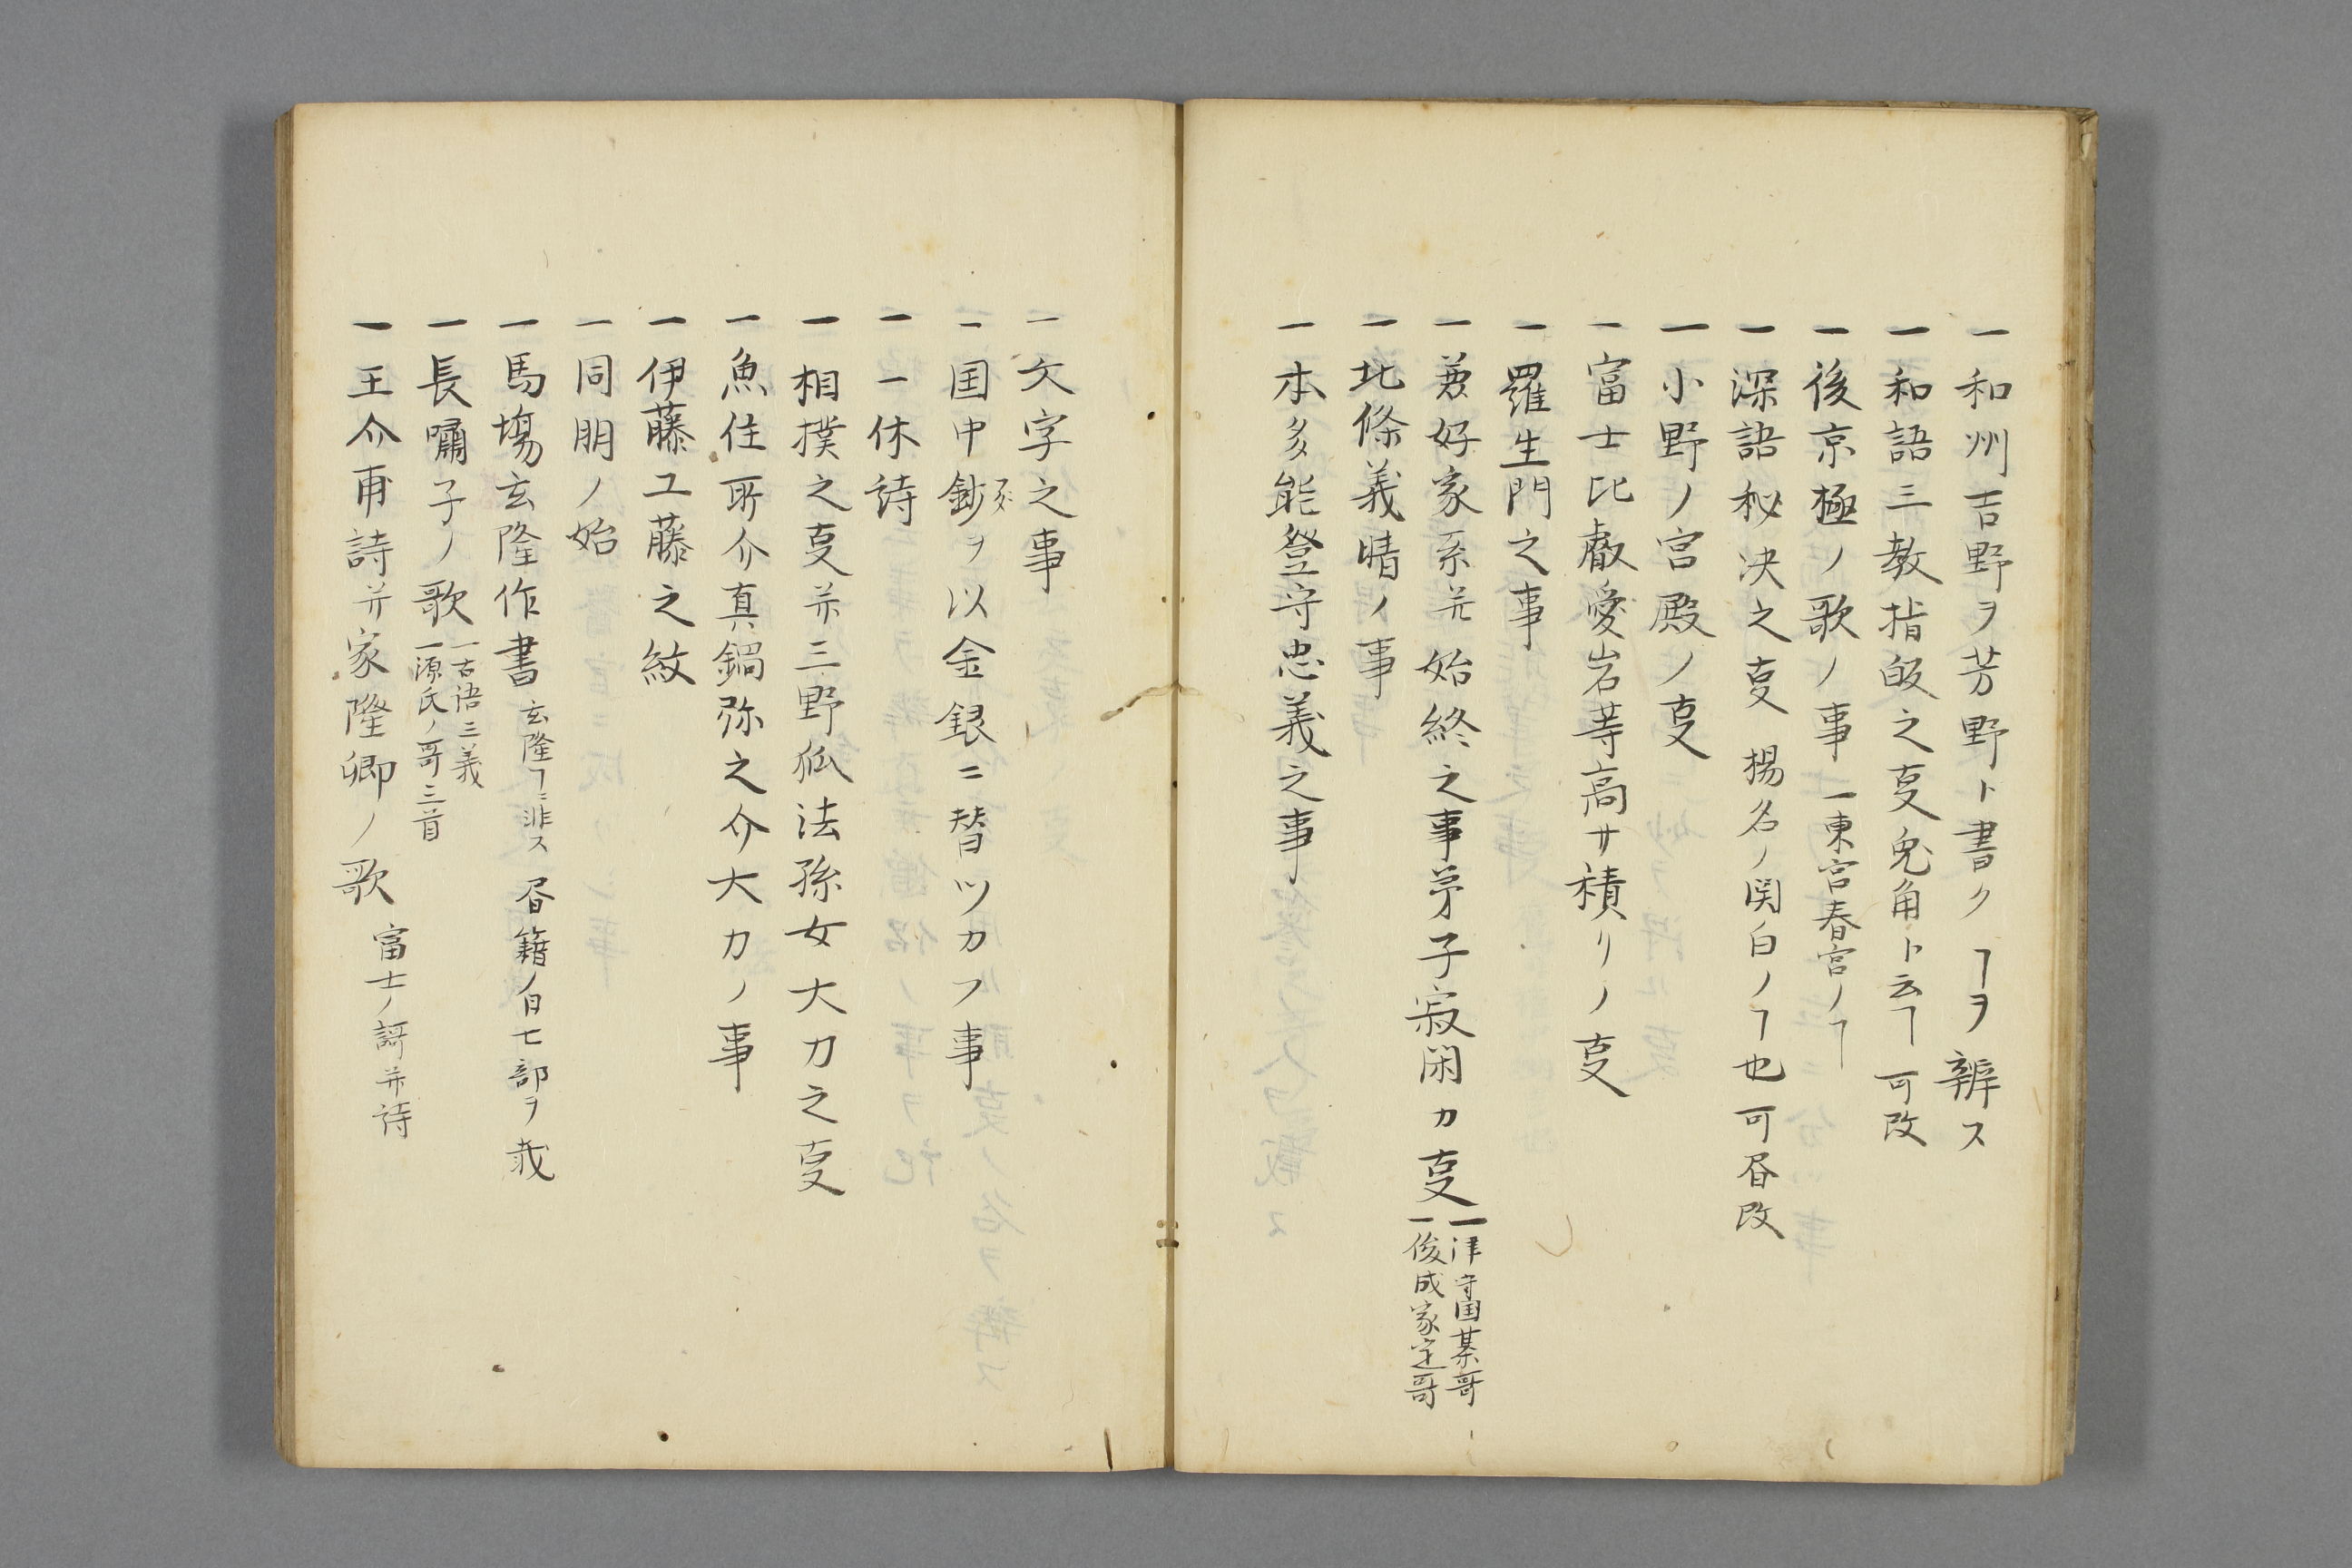 一和州吉野ヲ芳野ト書クヿヲ辨ス
一和語三教指皈之㕝兎角ト云ヿ可改
一後京極ノ歌ノ事 一東宮春宮ノヿ
一深語秘决之㕝 揚名ノ関白ノヿ也可昏改
一小野ノ宮殿ノ㕝
一富士比叡愛岩等高サ積リノ㕝
一羅生門之事
一兼好家系并始終之事茅子寂閑カ㕝
一津守国基哥
一俊成家定哥
一北條義晴ノ事
一本多能登守忠義之事
一文字之事
一国中鈔ヲ以金銀ニ替ツカフ事
一一休詩
一相撲之㕝并三野狐法孫女大力之㕝
一魚住所介真鍋弥之介大力ノ事
一伊藤工藤之紋
一同朋ノ始
一馬場玄隆作書 玄隆ヿニ非ス 昏籍ノ自七部ヲ載
一長嘯子ノ歌
一古語三義
一源氏ノ哥三首
一王介甫詩并家隆卿ノ歌 富士ノ謌并詩